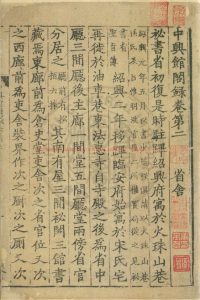 中興館閣録卷第二
省舍
祕書省初復是時駐蹕紹興府寓於火珠山巷
紹興二年移蹕臨安府始寓於宋氏宅
再徙於油車衖東法惠寺自寺殿之後爲省中
廳三間廳後主廊一間堂五間廳堂兩傍省官
分居之 其南有屋三間祕閣三館書
藏焉東廊前爲吏舍史堂次之省官位又次
之西廊前爲吏舍裝界作次之厨次之厠又次